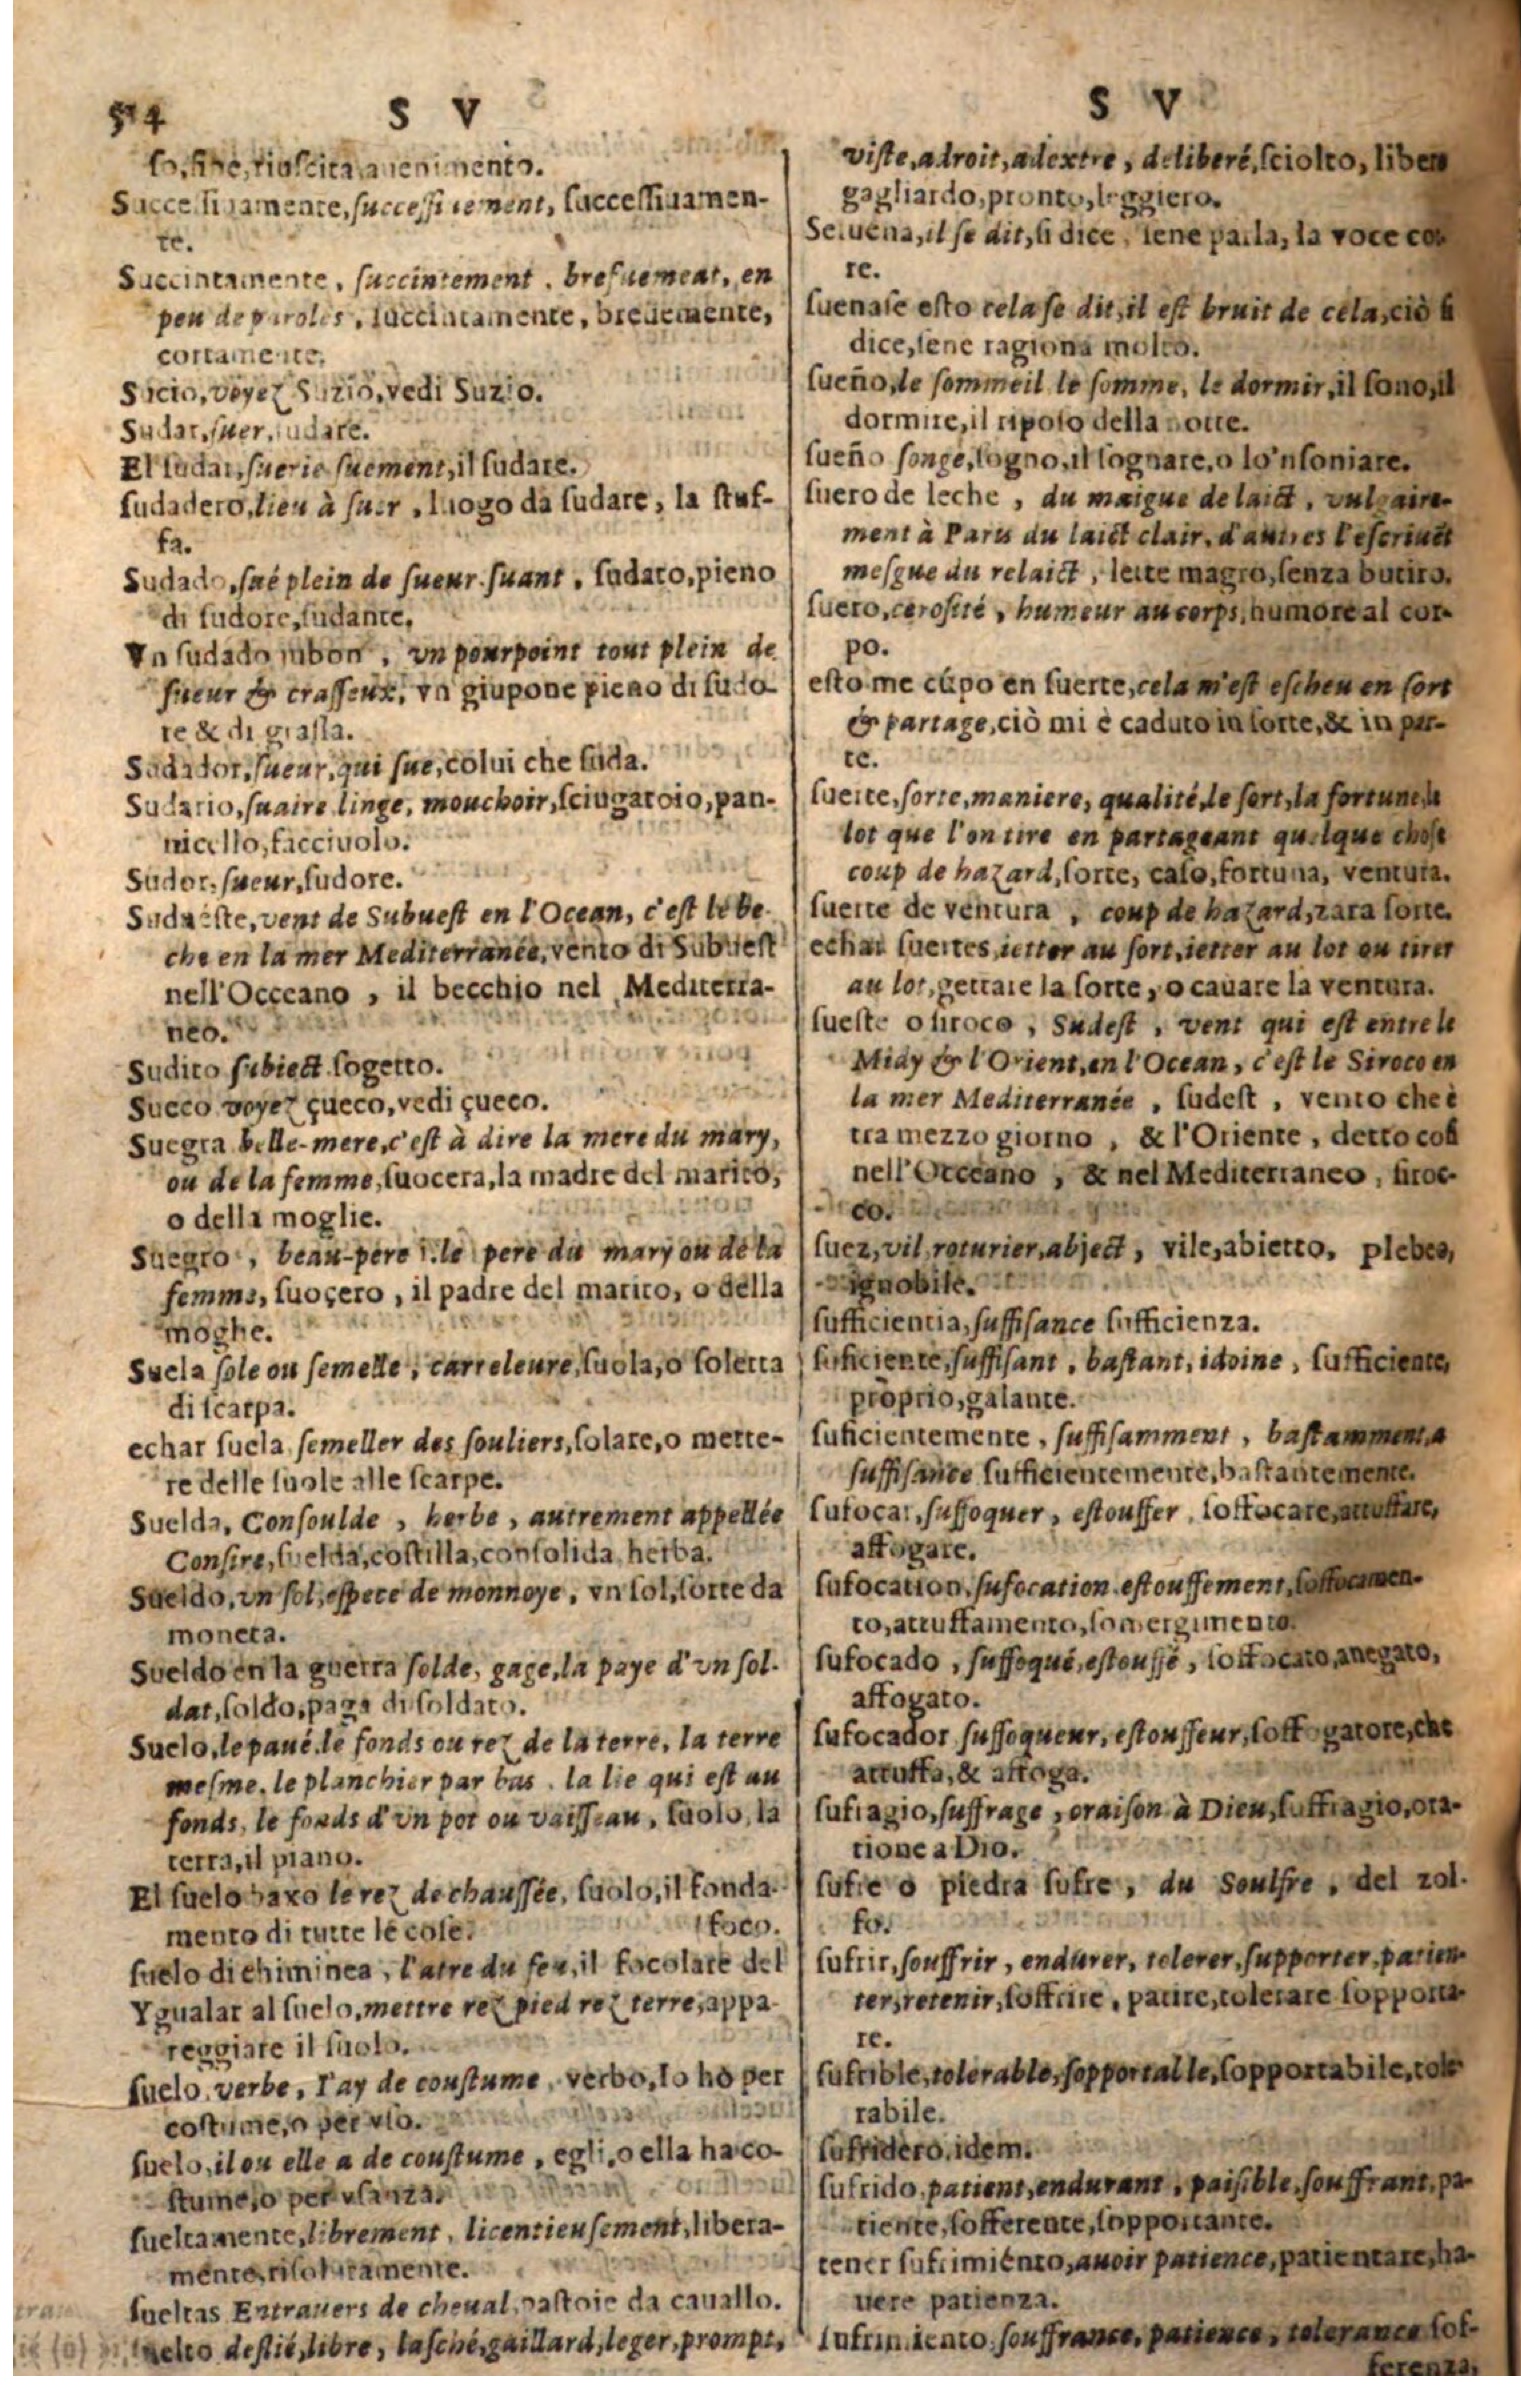 514 S V
so, fine, riuscita, auenimento.
Successiuamente, successiuement, successiuamen-
te.
Succintamente, succintement, brefuement, en
peu de paroles, succintamente, breuemente,
cortamente.
Sucio, voyez Suzio, vedi Suzio.
Sudar, suer, sudare.
El sudar, suerie suement, il sudare.
sudadero, lieu à suer, luogo da sudare, la stuf-
fa.
Sudado, sué plein de sueur, suant, sudato, pieno
di sudore, sudante.
Vn sudado jubon, vn pourpoint tout plein de
sueur & crasseux, vn giupone pieno di sudo-
re & di grassa.
Sudador, sueur, qui sue, colui che suda.
Sudario, suaire linge, mouchoir, sciugatoio, pan-
nicello, facciuolo.
Sudor, sueur, sudore.
Sudueste, vent de Subuest en l'Ocean, c'est le be-
che en la mer Mediterranée, vento di Subuest
nell'Occeano, il becchio nel Mediterra-
neo.
Sudito subiect sogetto.
Sueco voyez çueco, vedi çueco.
Suegra belle-mere, c'est à dire la mere du mary,
ou de la femme, suocera, la madre del marito,
o della moglie.
Suegro, beau-pere i. le pere du mary ou de la
femme, suoçero, il padre del marito, o della
moglie.
Suela sole ou semelle, carreleure, suola, o soletta
di scarpa.
echar suela semeller des souliers, solare, o mette-
re delle suole alle scarpe.
Suelda, Consoulde, herbe, autrement appellée
Consire, suelda, costilla, consolida herba.
Sueldo, vn sol, espece de monnoye, vn sol, sorte da
moneta.
Sueldo en la guerra solde, gage, la paye d'vn sol-
dat, soldo, paga di soldato.
Suelo, le paué, le fonds ou rez de la terre, la terre
mesme, le planchier par bas, la lie qui est au
fonds, le fonds d'vn pot ou vaisseau, suolo, la
terra, il piano.
El suelo baxo le rez de chaussée, suolo, il fonda-
mento di tutte le cose. (foco.
suelo di chiminea, l'atre du feu, il focolare del
Ygualar al suelo, mettre rez pied rez terre, appa-
reggiare il suolo.
suelo, verbe, I'ay de coustume, verbo, Io ho per
costume, o per vso.
suelo, il ou elle a de coustume, egli, o ella ha co-
stume, o per vsanza.
sueltamente, librement, licentieusement, libera-
mente, risolutamente.
sueltas Entrauers de cheual, pastoie da cauallo.
suelto deslié, libre, lasché, gaillard, leger, prompt,
S V
viste, adroit, adextre, deliberé, sciolto, libero
gagliardo, pronto, leggiero.
Se suena, il se dit, si dice, sene parla, la voce cor-
re.
suenase esto cela se dit, il est bruit de cela, ciò si
dice, sene ragiona molto.
sueño, le sommeil le somme, le dormir, il sono, il
dormire, il riposo della notte.
sueño songe, sogno, il sognare, o lo'nsoniare.
suero de leche, du maigue de laict, vulgaire-
ment à Paris du laict clair, d'autres l'escriuẽt
mesgue du relaict, lette magro, senza butiro.
suero, cerosité, humeur au corps, humore al cor-
po.
esto me cúpo en suerte, cela m'est escheu en sort
& partage, ciò mi è caduto in sorte, & in par-
te.
suerte, sorte, maniere, qualité, le sort, la fortune, le
lot que l'on tire en partageant quelque chose
coup de hazard, sorte, caso, fortuna, ventura.
suerte de ventura, coup de hazard, zara sorte.
echar suertes, ietter au sort, ietter au lot ou tirer
au lot, gettare la sorte, o cauare la ventura.
sueste o siroco, Sudest, vent qui est entre le
Midy & l'Orient, en l'Ocean, c'est le Siroco en
la mer Mediterranée, sudest, vento che è
tra mezzo giorno, & l'Oriente, detto cosi
nell'Occeano, & nel Mediterraneo, siroc-
co.
suez, vil, roturier, abject, vile, abietto, plebeo,
ignobile.
sufficientia, suffisance sufficienza.
suficiente, suffisant, bastant, idoine, sufficiente,
proprio, galante.
suficientemente, suffisamment, bastamment, a
suffisance sufficientemente, bastantemente.
sufocar, suffoquer, estouffer, soffocare, attuffare,
affogare.
sufocation, sufocation estouffement, soffocamen-
to, attuffamento, somergimento.
sufocado, suffoqué, estouffé, soffocato, anegato,
affogato.
sufocador suffoqueur, estouffeur, soffogatore, che
attuffa, & affoga.
sufragio, suffrage, oraison à Dieu, suffragio, ora-
tione a Dio.
sufre o piedra sufre, du Soulfre, del zol-
fo.
sufrir, souffrir, endurer, tolerer, supporter, patien-
ter, retenir, soffrire, patire, tolerare sopporta-
re.
sufrible, tolerable, sopportalle, sopportabile, tole-
rabile.
sufridero, idem.
sufrido, patient, endurant, paisible, souffrant, pa-
tiente, sofferente, sopportante.
tener sufrimiénto, auoir patience, patientare, ha-
uere patienza.
sufrimiento, souffrance, patience, tolerance sof-
ferenza,